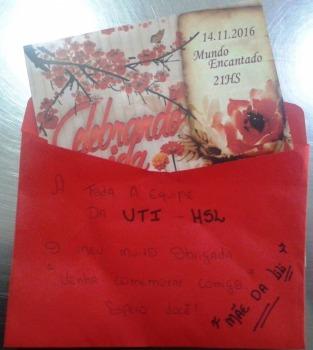 14.11.2016
Mundo
Encantado
21HS
Celebrando
A Toda A Equipe
Da UTI - HSL
O meu muito Obrigada
"Venha comemorar comigo"
Espero você!
* MÃE DA